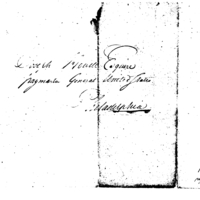 Joseph Howell Esquire
Paymaster General United States
Philadelphia